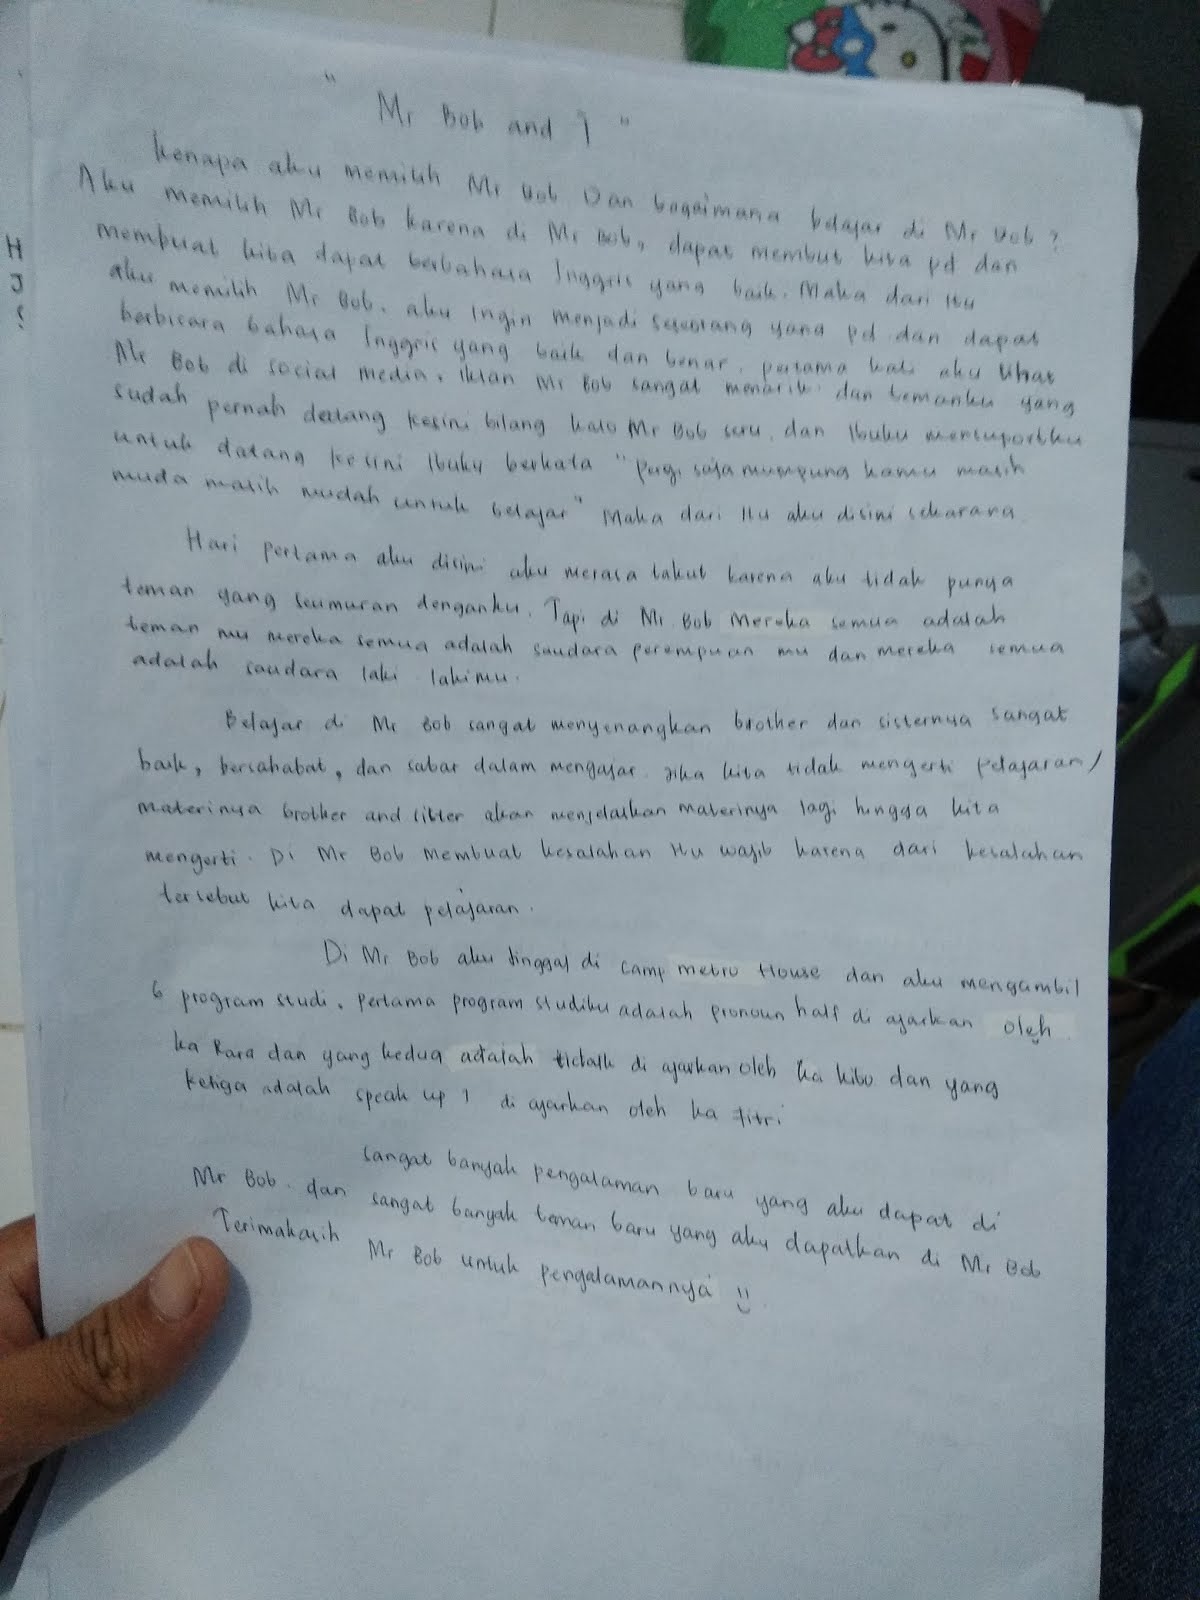 " Mr Bob and I "
kenapa aku memilih Mr Bob Dan bagaimana belajar di Mr Bob ?
Aku memilih Mr Bob karena di Mr Bob, dapat membut kita pd dan
membuat kita dapat berbahasa Inggris yang baik. Maka dari itu
aku memilih Mr Bob. aku Ingin menjadi seseorang yang pd dan dapat
berbicara bahasa Inggris yang baik dan benar. pertama kali aku lihat
Mr Bob di social media. iklan Mr Bob sangat menarik dan temanku yang
sudah pernah datang kesini bilang kalo Mr Bob seru. dan Ibuku mensuportku
untuk datang kesini Ibuku berkata "pergi saja mumpung kamu masih
muda masih mudah untuk belajar" Maka dari itu aku disini sekarang
Hari pertama aku disini aku merasa takut karena aku tidak punya
teman yang seumuran denganku. Tapi di Mr. Bob Mereka semua adalah
teman mu mereka semua adalah saudara perempuan mu dan mereka semua
adalah saudara laki lakimu.
Belajar di Mr Bob sangat menyenangkan brother dan sisternya sangat
baik, bersahabat, dan sabar dalam mengajar. jika kita tidak mengerti pelajaran/
materinya brother and sister akan menjelaskan materinya lagi hingga kita
mengerti. Di Mr Bob membuat kesalahan itu wajib karena dari kesalahan
tersebut kita dapat pelajaran.
Di Mr Bob aku tinggal di camp metro House dan aku mengambil
6 program studi. pertama program studiku adalah pronoun half di ajarkan oleh
ka Rara dan yang kedua adalah tictalk di ajarkan oleh ka kibo dan yang
ketiga adalah speak up 1 di ajarkan oleh ka fitri
sangat banyak pengalaman baru yang aku dapat di
Mr Bob. dan sangat banyak teman baru yang aku dapatkan di Mr Bob
Terimakasih Mr Bob untuk pengalamannya
H
J